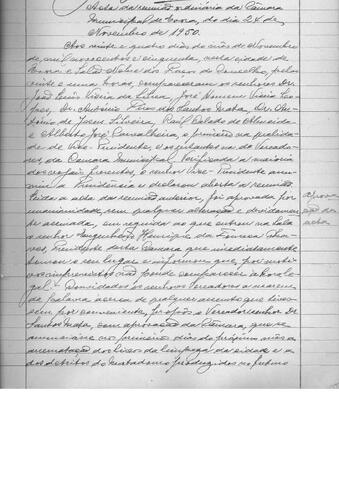 Acta da reunião ordinária da Câmara
Municipal de Évora, do dia 24 de
Novembro de 1950.
Aos vinte e quatro dias do mês de Novembro
de mil novecentos e cinquenta, nesta cidade de
Évora e Salão Nobre dos Paços do Concelho, pelas
vinte e uma horas, compareceram os senhores Dr.
José Luiz Vieira da Silva, José
Dr. António dos Santos Mata, Dr. An-
tónio de Jesus Silveira, Raúl Eslado de Almeida
e Alberto José Carvalheira, o primeiro na qualida-
de de Vice-Presidente, e os restantes na de Vereado-
res, da Câmara Municipal. Verificada a maioria
dos vogais presentes, o senhor Vice-Presidente assu-
miu a Presidência e declarou aberta a reunião.
Lida a acta da reunião anterior, foi aprovada por
unanimidade sem qualquer alteração e devidamen-
te assinada, em seguida ao que entrou na sala
o senhor Engenheiro Henrique da Fonseca Cha-
ves, Presidente desta Câmara que imediatamente
tomou o seu lugar e informou que, por motivo
imprevisto não poude comparecer à hora le-
gal. - Convidados os senhores Vereadores a usarem
da palavra acerca de qualquer assunto que tives-
sem por conveniente, propôs o Vereador senhor Dr.
Santos Mata, com aprovação da Câmara, que se
anunciasse nos primeiros dias do próximo mês a
arrematação dos lixos da limpeza da cidade e a
dos detritos do Matadouro produzidos no futuro
aprova-
ção da
acta